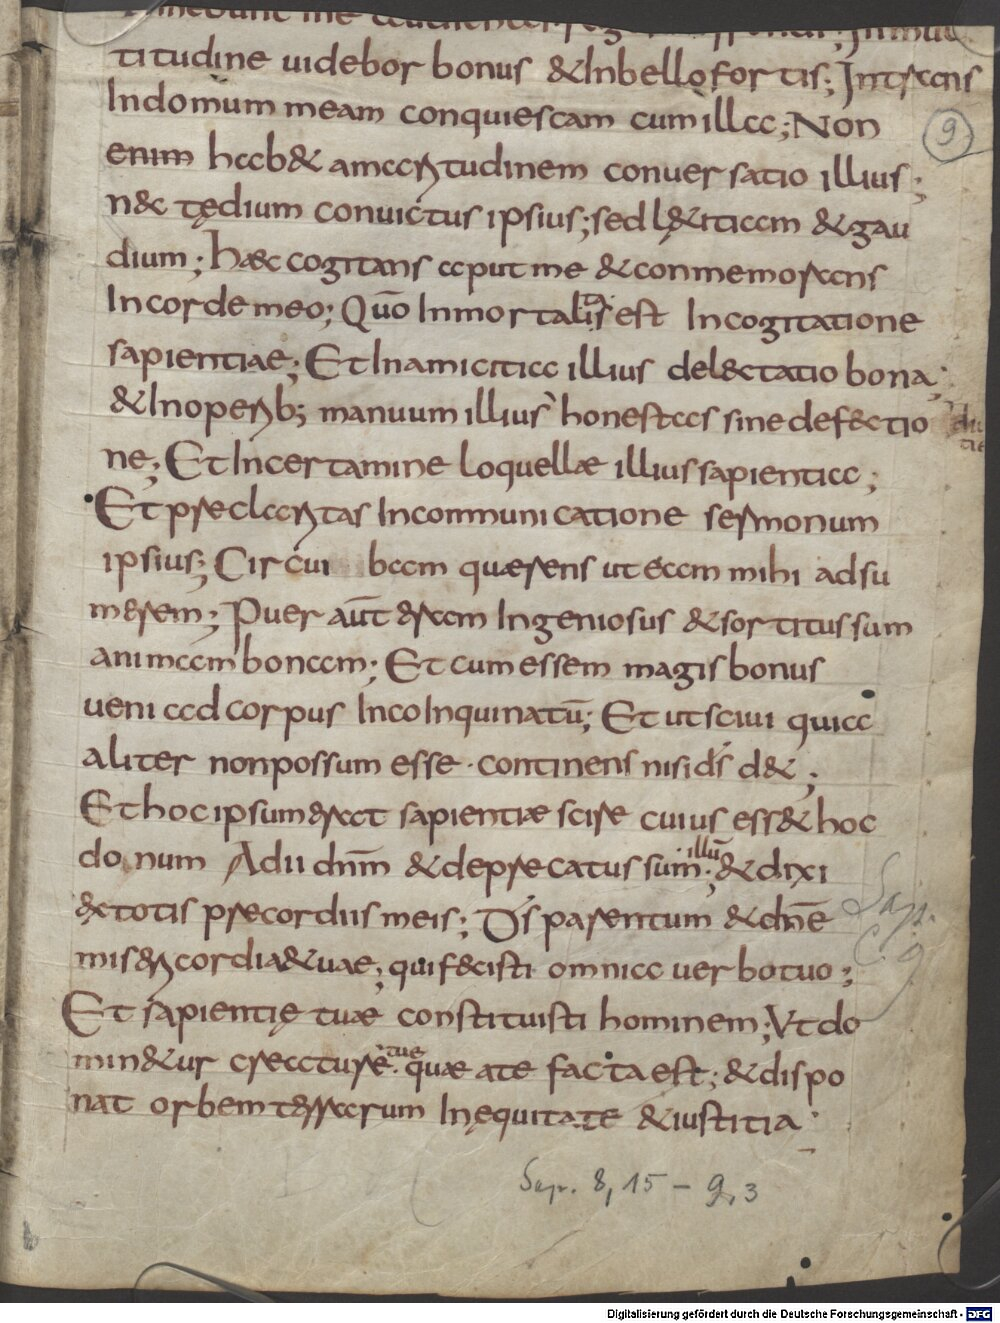 titudine uidebor bonus & In bello fortis; Intrans
In domum meam conquiescam cum illa; Non
enim hab& amaritudinem conuersatio illius;
nec tędium conuictus ipsius; sed lętitiam & gau
dium; haec cogitans aput me & conmemorans
In corde meo; Quō Inmortalis est In cogitatione
sapientiae; Et In amicitia illius delectatio bona;
& In operib; manuum illius honestas sine defectio
ne; Et In certamine loquellæ illius sapientia;
Et preclaritas In communicatione sermonum
ipsius; Circuibam quærens ut eam mihi adsu
merem; Puer aūt eram Ingeniosus & sortitus sum
animam bonam; Et cum essem magis bonus
ueni ad corpus Incoinquinatū; Et ut sciui quia
aliter non possum esse continens nisi d̄s d&;
Et hoc ipsum erat sapientiæ scire cuius ess& hoc
donum Adii dnm̄ & deprecatus sum illū; & dixi
ex totis precordiis meis; D̄s parentum & dnē
misericordiae tuae; qui fecisti omnia uerbo tuo;
Et sapientię tuæ constituisti hominem; Vt do
min&ur creaturę tuę quæ a te facta est; & dispo
nat orbem terrarum In equitate & iustitia
9
Sap.
C. 9
Sap. 8, 15 – 9, 3
Digitalisierung gefördert durch die Deutsche Forschungsgemeinschaft - DFG